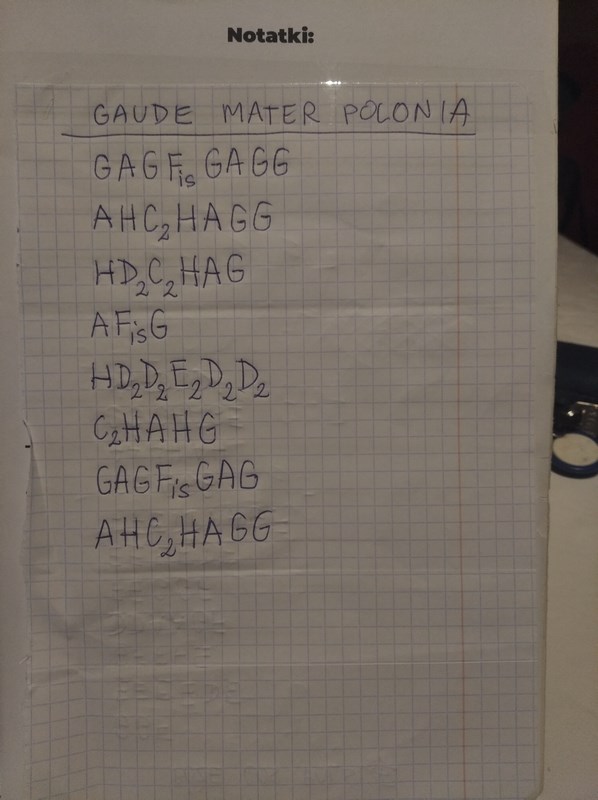 Notatki:
GAUDE MATER POLONIA
GAGFis GAGG
AHC₂HAGG
HD₂C₂HAG
AFisG
HD₂D₂E₂D₂D₂
C₂HAHG
GAGFisGAG
AHC₂HAGG